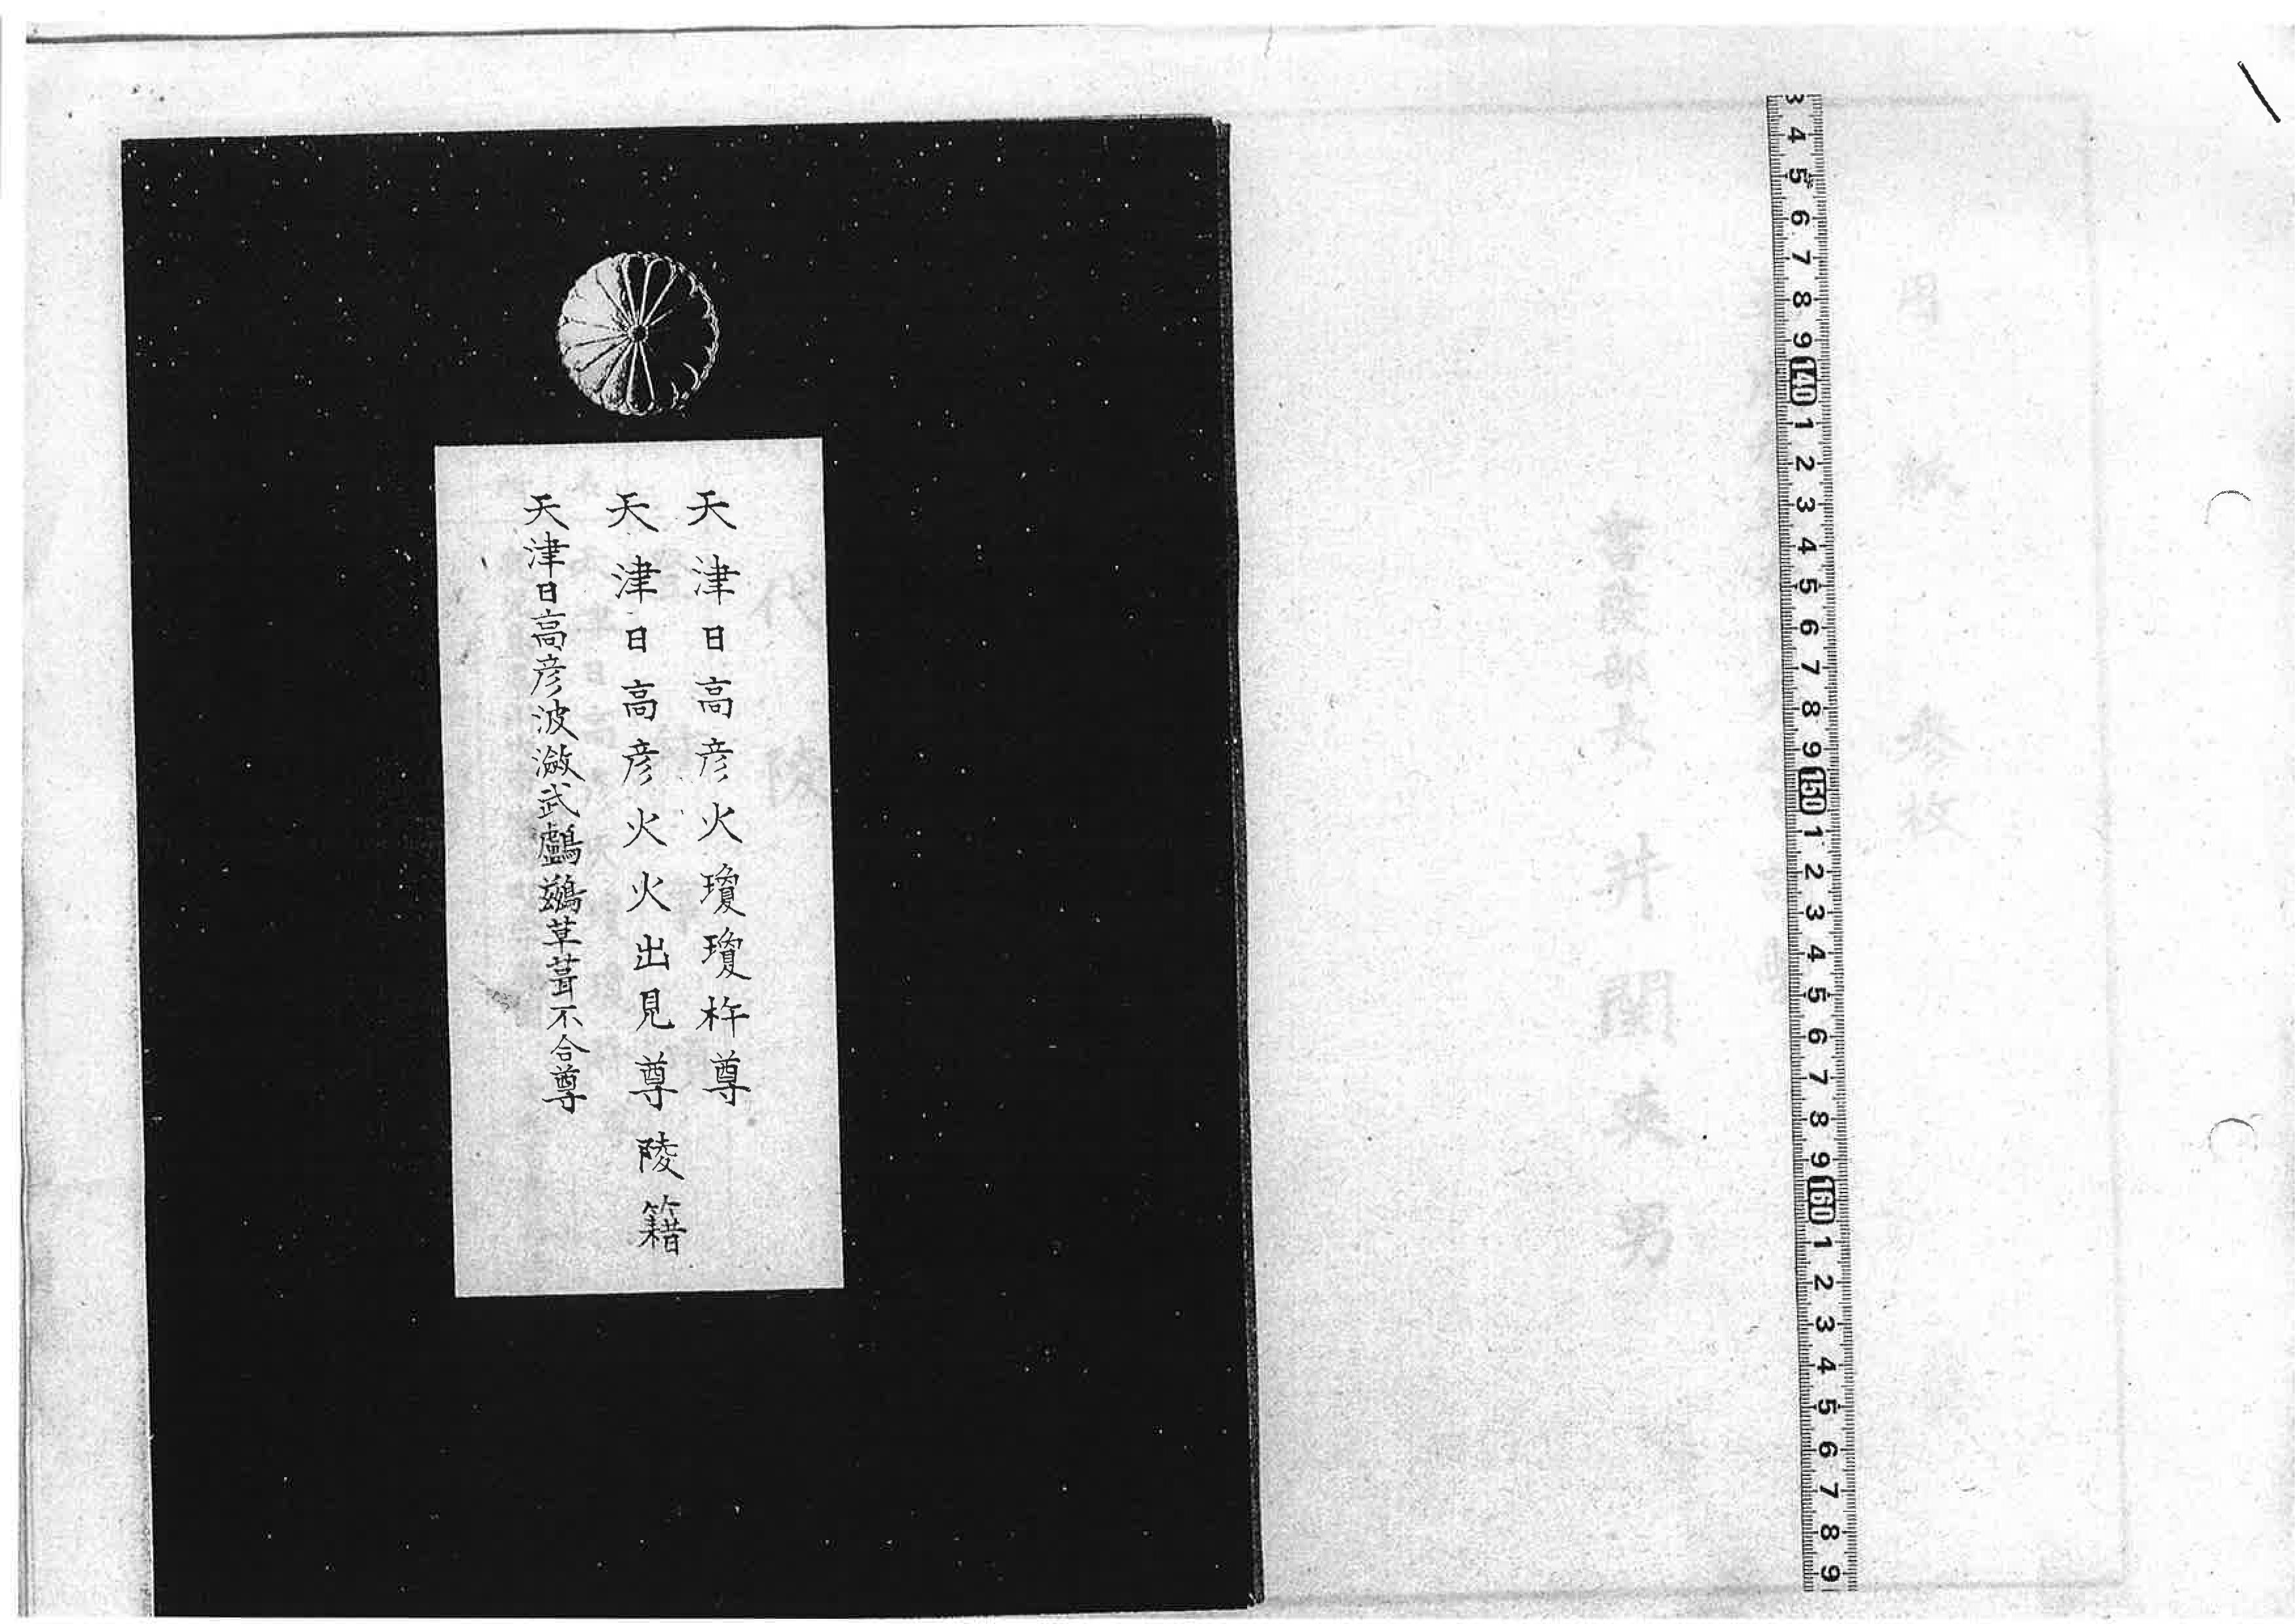 天津日高彦火瓊瓊杵尊
天津日高彦火火出見尊陵籍
天津日高彦波瀲武鸕鷀草葺不合尊
書陵部長 井関英男
用紙 参枚
代陵
3 4 5 6 7 8 9 140 1 2 3 4 5 6 7 8 9 150 1 2 3 4 5 6 7 8 9 160 1 2 3 4 5 6 7 8 9